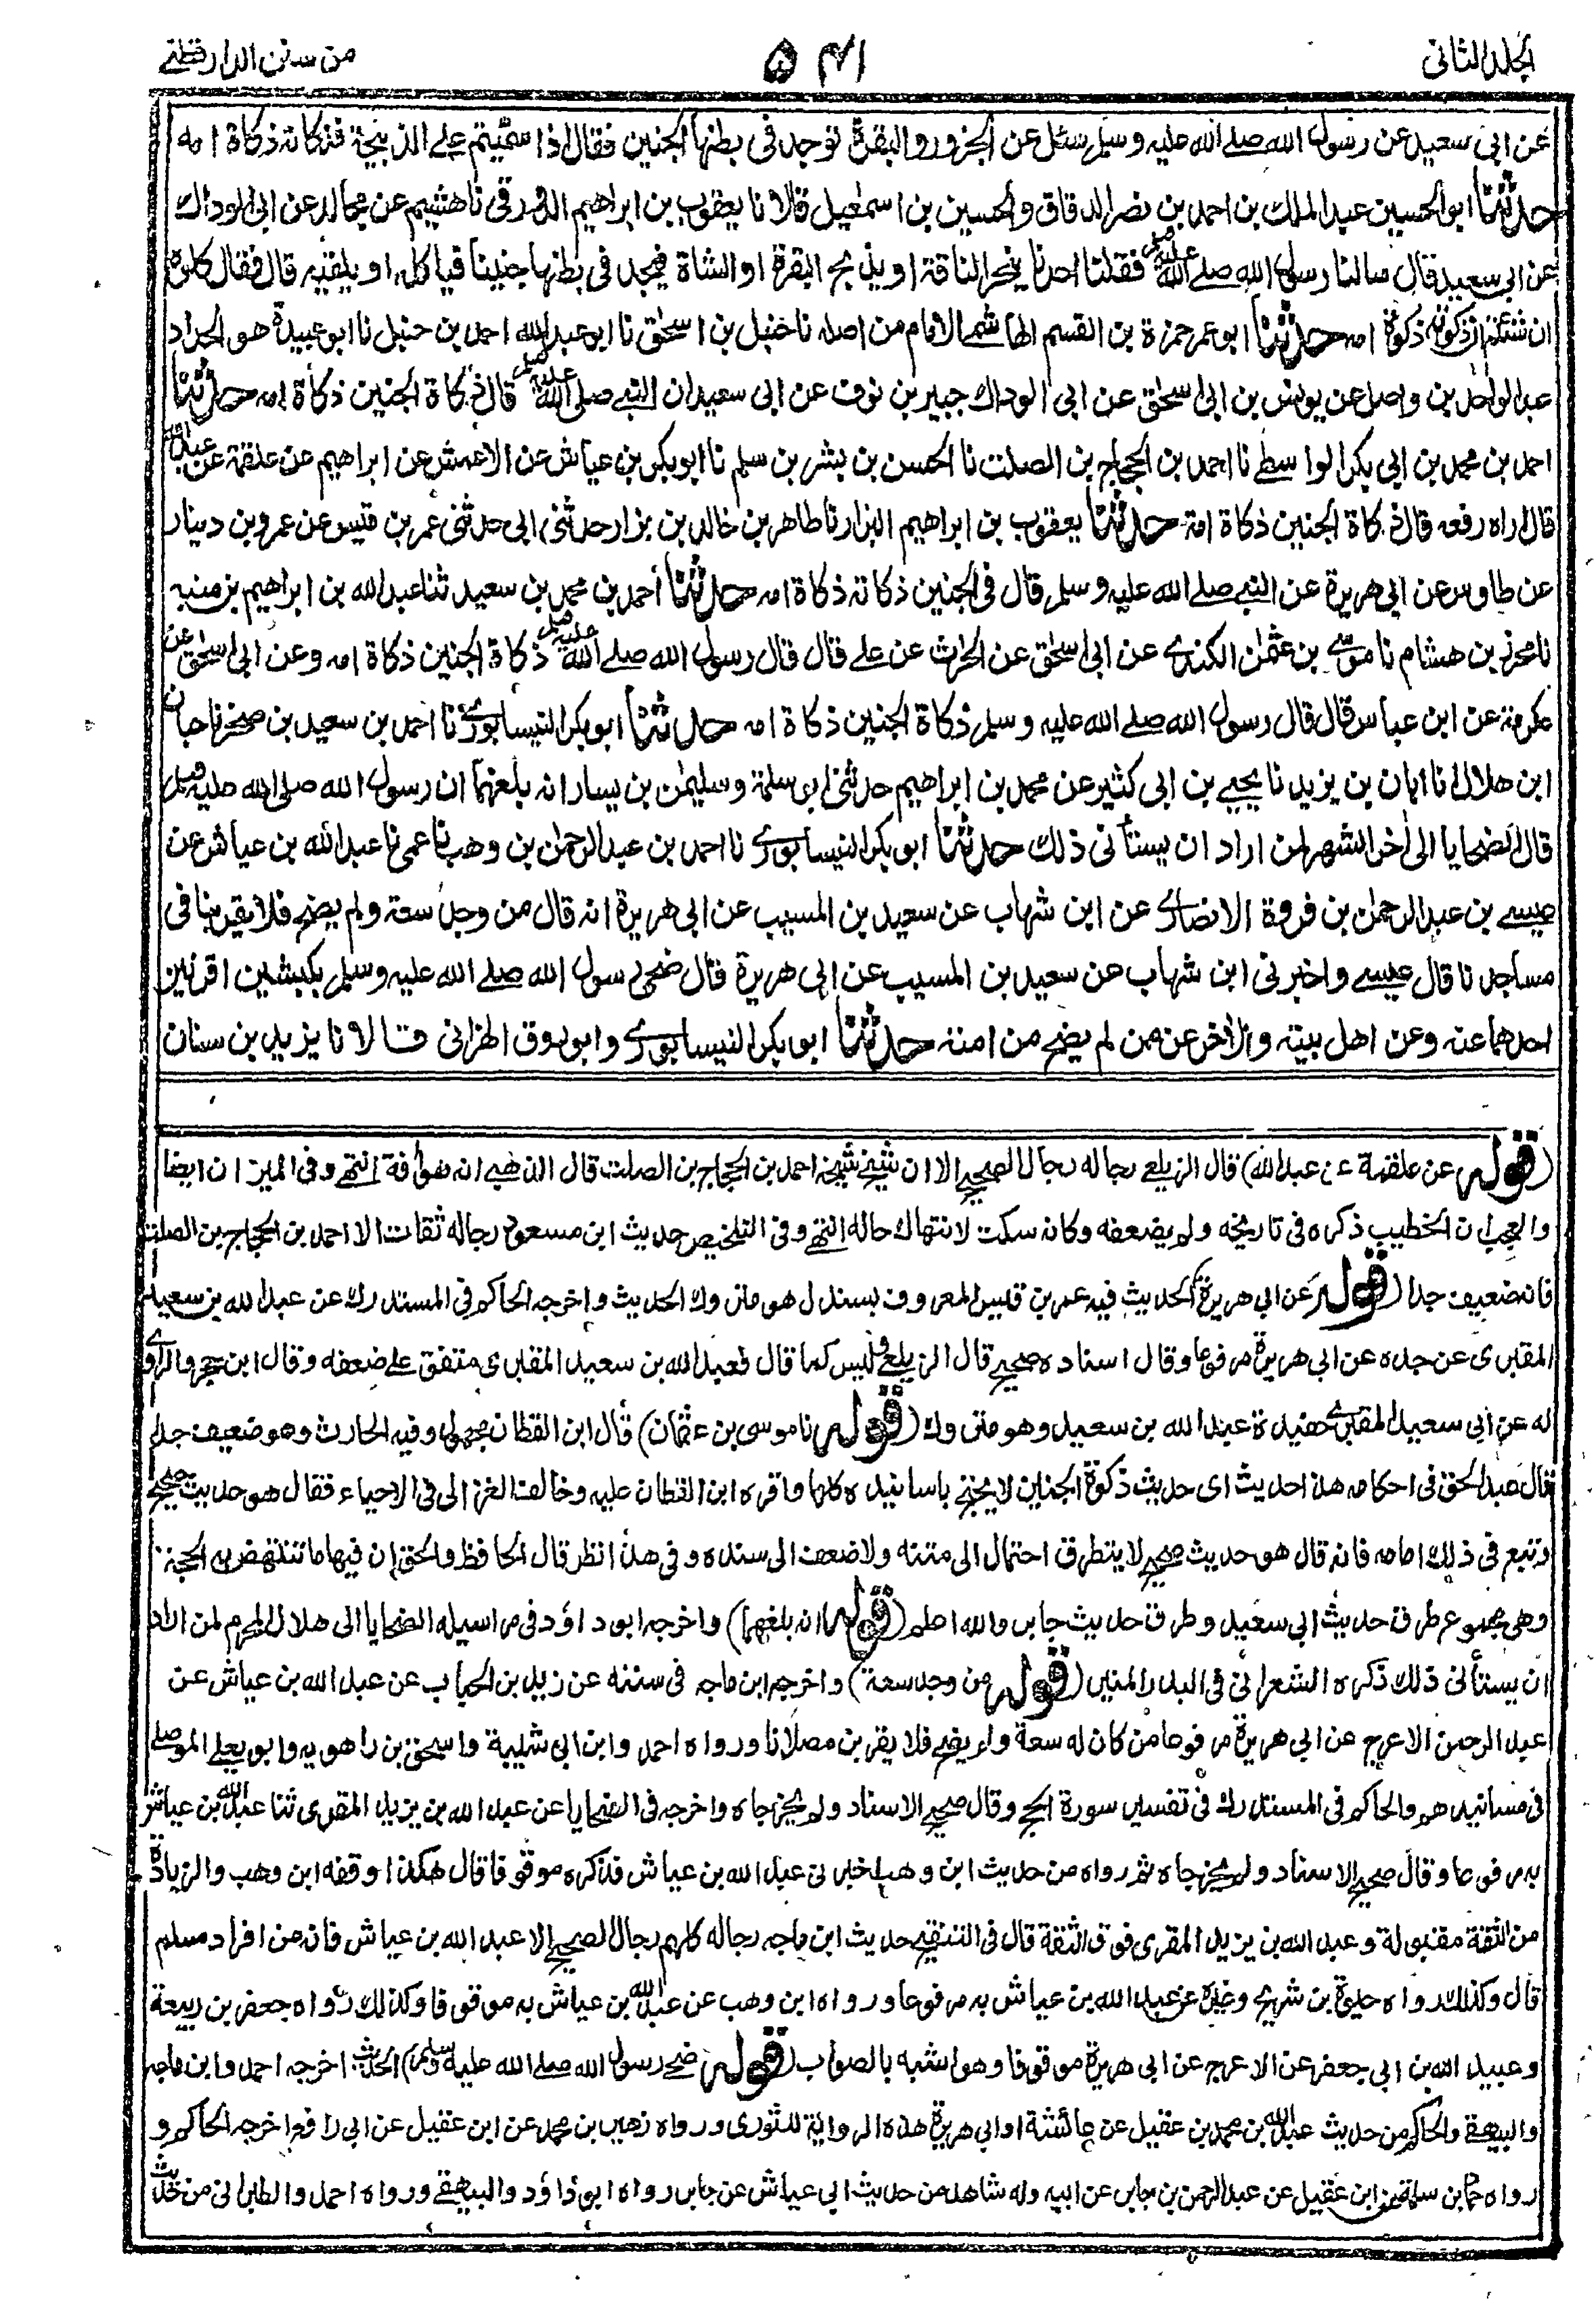 الجلد الثانى
٥٤١
من سنن الدارقطنے
عن ابى سعيد عن رسول الله صلے الله عليه وسلم سئل عن الجزور والبقرة توجد فى بطنها الجنين فقال اذا سميتم علے الذبيحة فذكاته ذكاة امه
حدثنا ابو الحسين عبد الملك بن احمد بن نصر الدقاق والحسين بن اسمعيل قالا نا يعقوب بن ابراهيم الدورقى نا هشيم عن مجالد عن ابى الوداك
عن ابى سعيد قال سالنا رسول الله صلے الله عليه وسلم فقلنا احدنا ينحر الناقة او يذبح البقرة او الشاة فيجد فى بطنها جنينا فياكله او يلقيه قال فقال كلوه
ان شئتم ان ذكوته ذكوة امه حدثنا ابو عمر حمزة بن القسم الهاشمے الامام من اصله نا حنبل بن اسحٰق نا ابو عبد الله احمد بن حنبل نا ابو عبيدة هو الحداد
عبد الواحد بن واصل عن يونس بن ابى اسحٰق عن ابى الوداك جبير بن نوف عن ابى سعيد ان النبے صلى الله عليه وسلم قال ذكاة الجنين ذكاة امه حدثنا
احمد بن محمد بن ابى بكر الواسطے نا احمد بن الحجاج بن الصلت نا الحسن بن بشر بن سلم نا ابو بكر بن عياش عن الاعمش عن ابراهيم عن علقمة عن عبد الله
قال اراه رفعه قال ذكاة الجنين ذكاة امه حدثنا يعقوب بن ابراهيم البزار نا طاهر بن خالد بن نزار حدثنى ابى حدثنى عمر بن قيس عن عمرو بن دينار
عن طاوس عن ابى هريرة عن النبے صلے الله عليه وسلم قال فى الجنين ذكاته ذكاة امه حدثنا أحمد بن محمد بن سعيد ثنا عبد الله بن ابراهيم بن منبه
نا محرز بن هشام نا موسى بن عثمٰن الكندے عن ابى اسحٰق عن الحارث عن علے قال قال رسول الله صلے الله عليه وسلم ذكاة الجنين ذكاة امه وعن ابى اسحٰق عن
عكرمة عن ابن عباس قال قال رسول الله صلے الله عليه وسلم ذكاة الجنين ذكاة امه حدثنا ابو بكر النيسابورے نا احمد بن سعيد بن صخر نا حبان
ابن هلال نا ابان بن يزيد نا يحيے بن ابى كثير عن محمد بن ابراهيم حدثنى ابو سلمة وسليمٰن بن يسار انه بلغهما ان رسول الله صلى الله عليه وسلم
قال الضحايا الى اٰخر الشهر لمن اراد ان يستأنى ذلك حدثنا ابو بكر النيسابورے نا احمد بن عبد الرحمٰن بن وهب نا عمى نا عبد الله بن عياش عن
عيسے بن عبد الرحمٰن بن فروة الانصارے عن ابن شهاب عن سعيد بن المسيب عن ابى هريرة انه قال من وجد سعة ولم يضح فلا يقربنا فى
مساجدنا قال عيسے واخبرنى ابن شهاب عن سعيد بن المسيب عن ابى هريرة قال ضحى رسول الله صلے الله عليه وسلم بكبشين اقرنين
احدهما عنه وعن اهل بيته والاٰخر عنه عمن لم يضح من امته حدثنا ابو بكر النيسابورے وابو روق الهزانى قالا نا يزيد بن سنان
(قوله عن علقمة عن عبد الله) قال الزيلعے رجاله رجال الصحيح الا ان شيخ شيخه احمد بن الحجاج بن الصلت قال الذهبے انه هو اٰفة انتهے وفى الميزان ايضا
والعجب ان الخطيب ذكره فى تاريخه ولم يضعفه وكانه سكت لانتهاك حاله انتهے وفى التلخيص حديث ابن مسعود رجاله ثقات الا احمد بن الحجاج بن الصلت
فانه ضعيف جدا (قوله عن ابى هريرة) الحديث فيه عمر بن قيس المعروف بسندل هو متروك الحديث واخرجه الحاكم فى المستدرك عن عبد الله بن سعيد
المقبرى عن جده عن ابى هريرة مرفوعا وقال اسناده صحيح قال الزيلعے وليس كما قال فعبد الله بن سعيد المقبرى متفق علے ضعفه وقال ابن حجر والراوے
له عن ابى سعيد المقبرے حفيده عبد الله بن سعيد وهو متروك (قوله نا موسى بن عثمان) قال ابن القطان مجهول وفيه الحارث وهو ضعيف جدا
قال عبد الحق فى احكامه هذا حديث اى حديث ذكوة الجنين لا يحتج باسانيده كلها واقره ابن القطان عليه وخالف الغزالى فى الاحياء فقال هو حديث صحيح
وتبع فى ذلك امامه فانه قال هو حديث صحيح لا يتطرق احتمال الى متنه ولا ضعف الى سنده وفى هذا نظر قال الحافظ والحق ان فيها ما تنتهض به الحجة
وهى مجموع طرق حديث ابى سعيد وطرق حديث جابر والله اعلم (قوله انه بلغهما) واخرجه ابو داؤد فى مراسيله الضحايا الى هلال المحرم لمن اراد
ان يستأنى ذلك ذكره الشعرانى فى البدر المنير (قوله من وجد سعة) واخرجه ابن ماجه فى سننه عن زيد بن الحباب عن عبد الله بن عياش عن
عبد الرحمن الاعرج عن ابى هريرة مرفوعا من كان له سعة ولم يضح فلا يقربن مصلانا ورواه احمد وابن ابى شيبة واسحٰق بن راهويه وابو يعلے الموصلے
فى مسانيدهم والحاكم فى المستدرك فى تفسير سورة الحج وقال صحيح الاسناد ولم يخرجاه واخرجه فى الضحايا عن عبد الله بن يزيد المقرى ثنا عبد الله بن عياش
به مرفوعا وقال صحيح الاسناد ولم يخرجاه ثم رواه من حديث ابن وهب اخبرنى عبد الله بن عياش فذكره موقوفا قال هكذا اوقفه ابن وهب والزيادة
من الثقة مقبولة وعبد الله بن يزيد المقرى فوق الثقة قال فى التنقيح حديث ابن ماجه رجاله كلهم رجال الصحيح الا عبد الله بن عياش فانه من افراد مسلم
قال وكذلك رواه حيوة بن شريح وغيره عن عبد الله بن عياش به مرفوعا ورواه ابن وهب عن عبد الله بن عياش به موقوفا وكذلك رواه جعفر بن ربيعة
وعبيد الله بن ابى جعفر عن الاعرج عن ابى هريرة موقوفا وهو اشبه بالصواب (قوله ضحے رسول الله صلے الله عليه وسلم) الحديث اخرجه احمد وابن ماجه
والبيهقے والحاكم من حديث عبد الله بن محمد بن عقيل عن عائشة او ابى هريرة هذه الرواية للثورى ورواه زهير بن محمد عن ابن عقيل عن ابى رافع اخرجه الحاكم و
رواه حماد بن سلمة عن ابن عقيل عن عبد الرحمن بن جابر عن ابيه وله شاهد من حديث ابى عياش عن جابر رواه ابو داؤد والبيهقے ورواه احمد والطبرانى من حديث